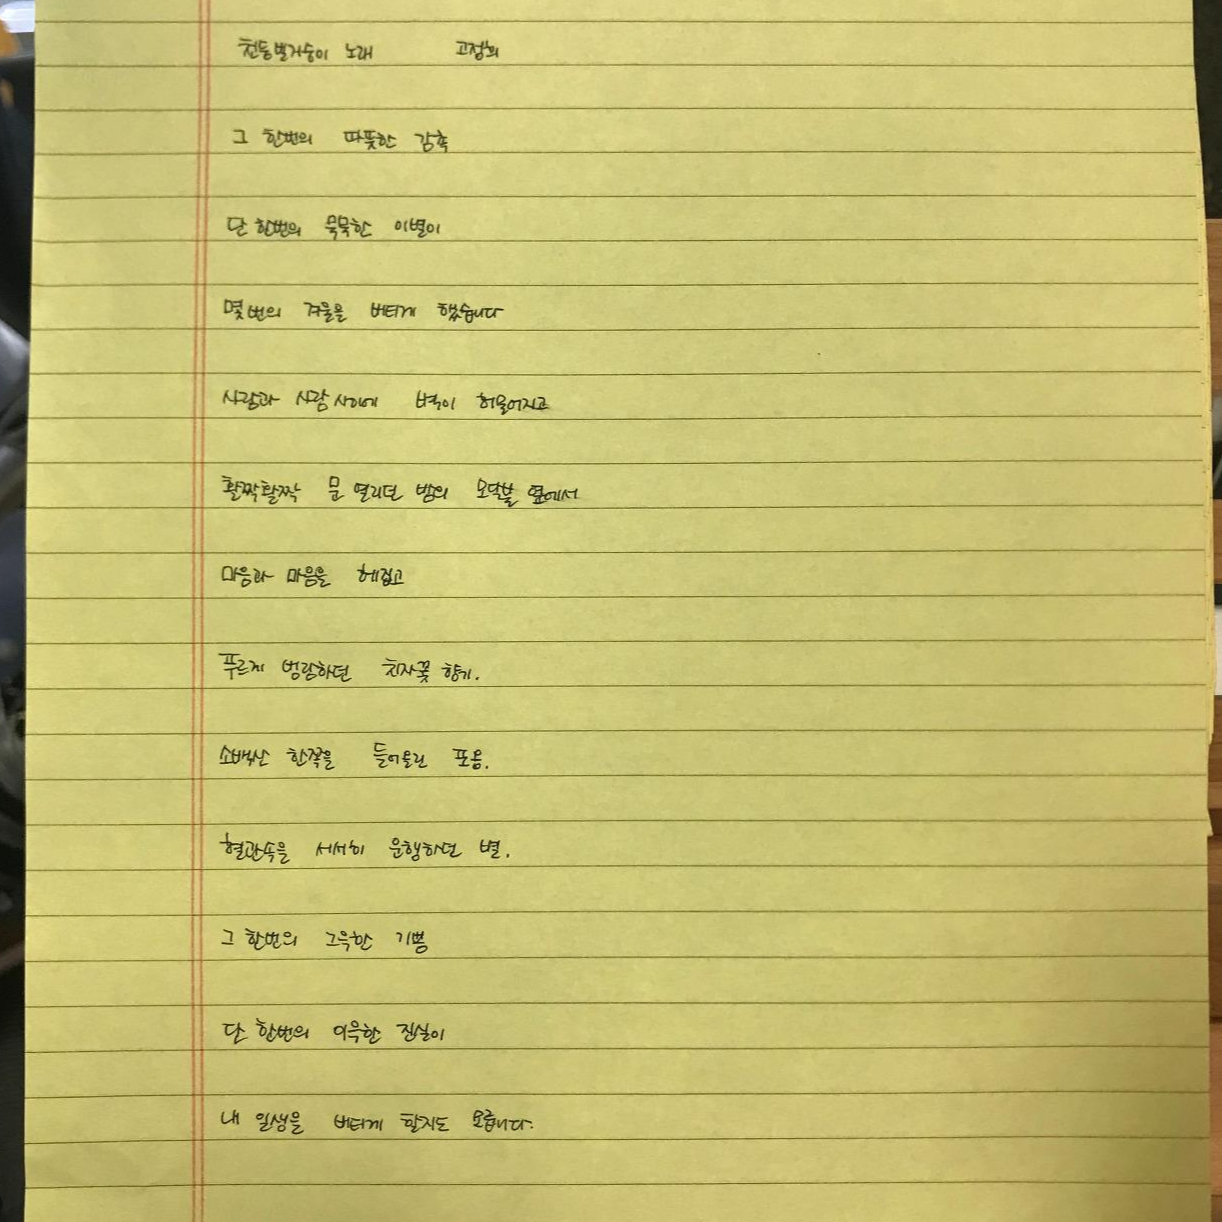 천둥벌거숭이 노래 고정희
그 한번의 따뜻한 감촉
단 한번의 묵묵한 이별이
몇 번의 겨울을 버티게 했습니다
사람과 사람 사이에 벽이 허물어지고
활짝활짝 문 열리던 밤의 모닥불 옆에서
마음과 마음을 헤집고
푸르게 범람하던 치자꽃 향기.
소백산 한쪽을 들어올린 포옹.
혈관속을 서서히 운행하던 별.
그 한번의 그윽한 기쁨
단 한번의 이윽한 진실이
내 일생을 버티게 할지도 모릅니다.